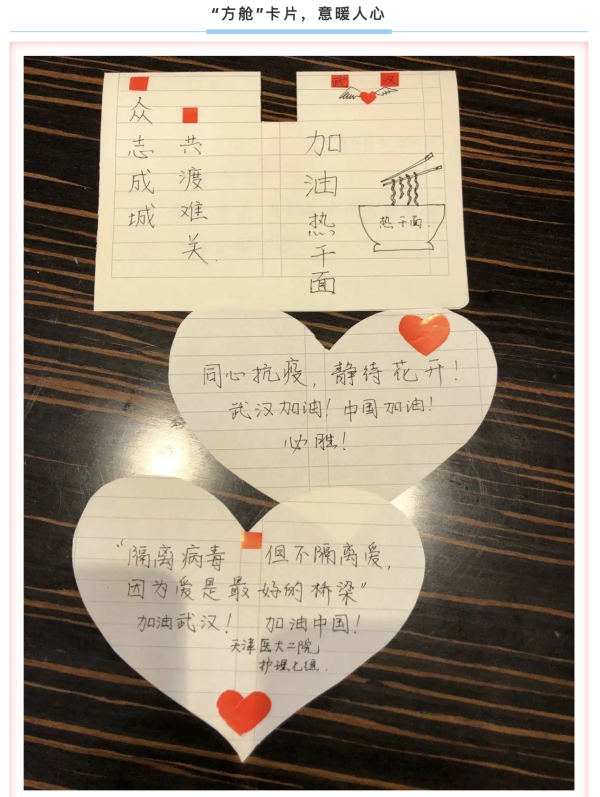 “方舱”卡片，意暖人心
众志成城
共渡难关.
武 汉
加油热干面
热干面
同心抗疫，静待花开！
武汉加油！中国加油！
必胜！
“隔离病毒 但不隔离爱，
因为爱是最好的桥梁”
加油武汉！ 加油中国！
天津医大二院
护理七组.